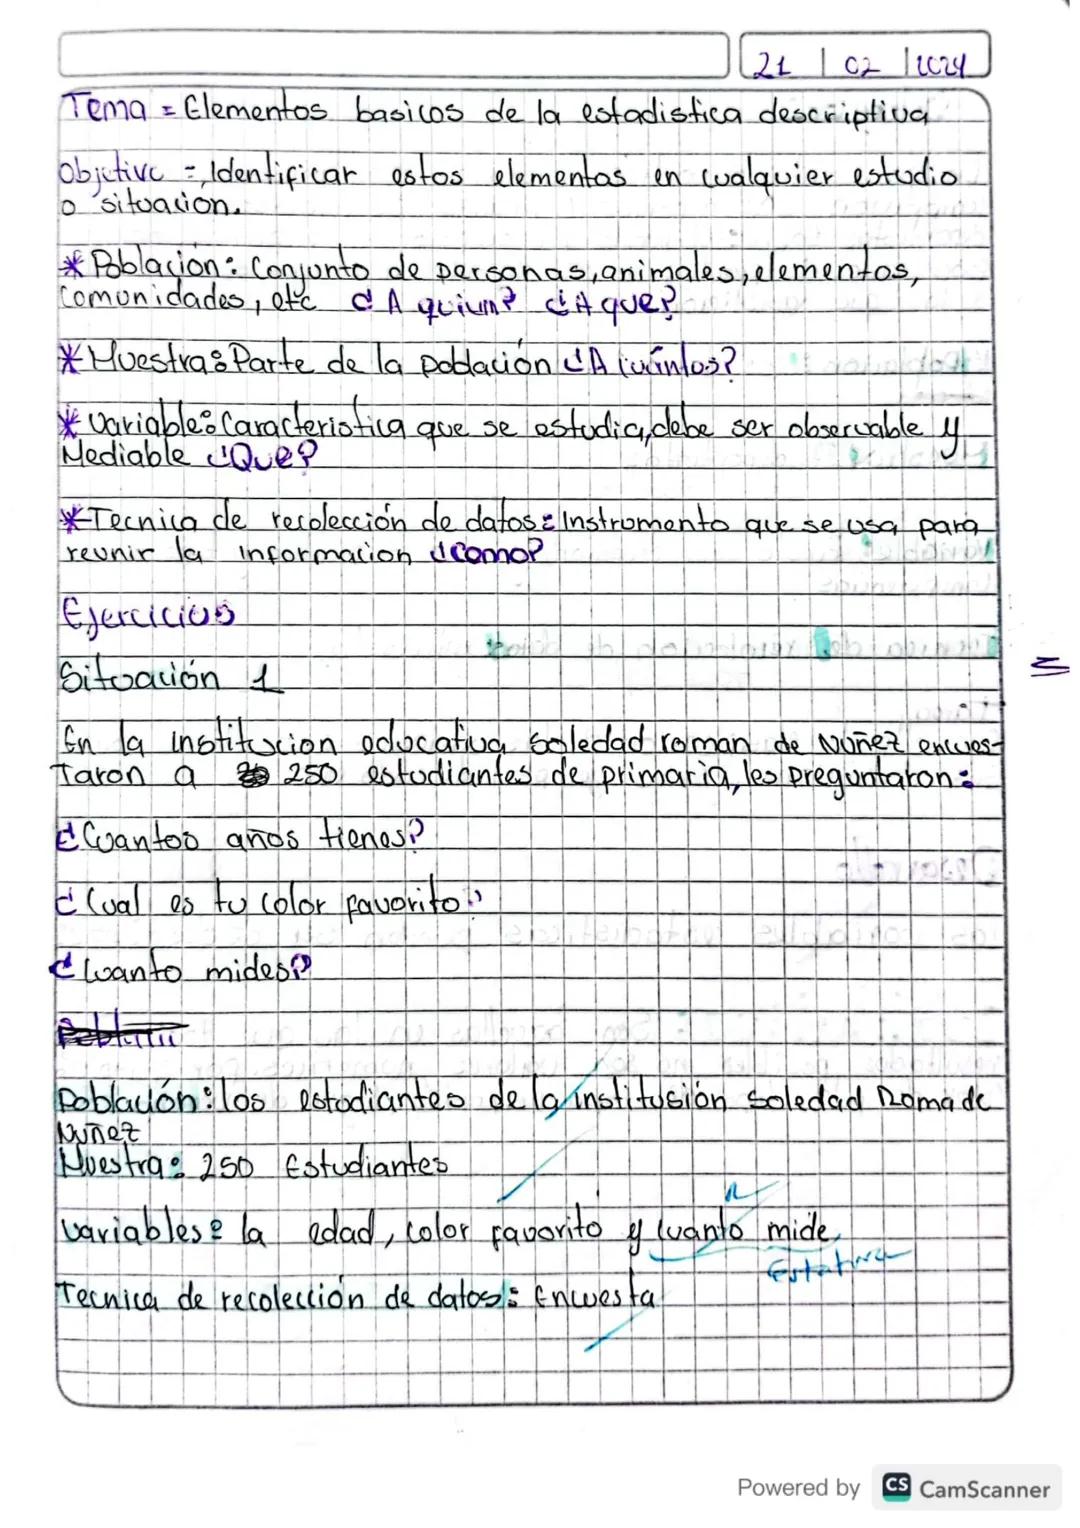 21 | 02 | 2024
Tema = Elementos basicos de la estadistica descriptiva
Objetivo = Identificar estos elementos en cualquier estudio
o situación.
* Población: Conjunto de personas, animales, elementos,
Comunidades, etc ¿A quien? ¿A que?
* Muestra: Parte de la población ¿A cuántos?
* Variable: Caracteristica que se estudia, debe ser observable y
Mediable ¿Que?
* Tecnica de recolección de datos: Instrumento que se usa para
reunir la informacion ¿como?
Ejercicios
Situación 1
En la institucion educativa Soledad roman de Nuñez encues-
Taron a 250 estudiantes de primaria, les preguntaron:
¿Cuantos años tienes?
¿Cual es tu color favorito?
¿Cuanto mides?
Población: los estudiantes de la institusión Soledad Roma de
Nuñez
Muestra: 250 Estudiantes
Variables: la edad, color favorito y cuanto mide,
Estatura
Tecnica de recolección de datos: Encuesta
Powered by CS CamScanner